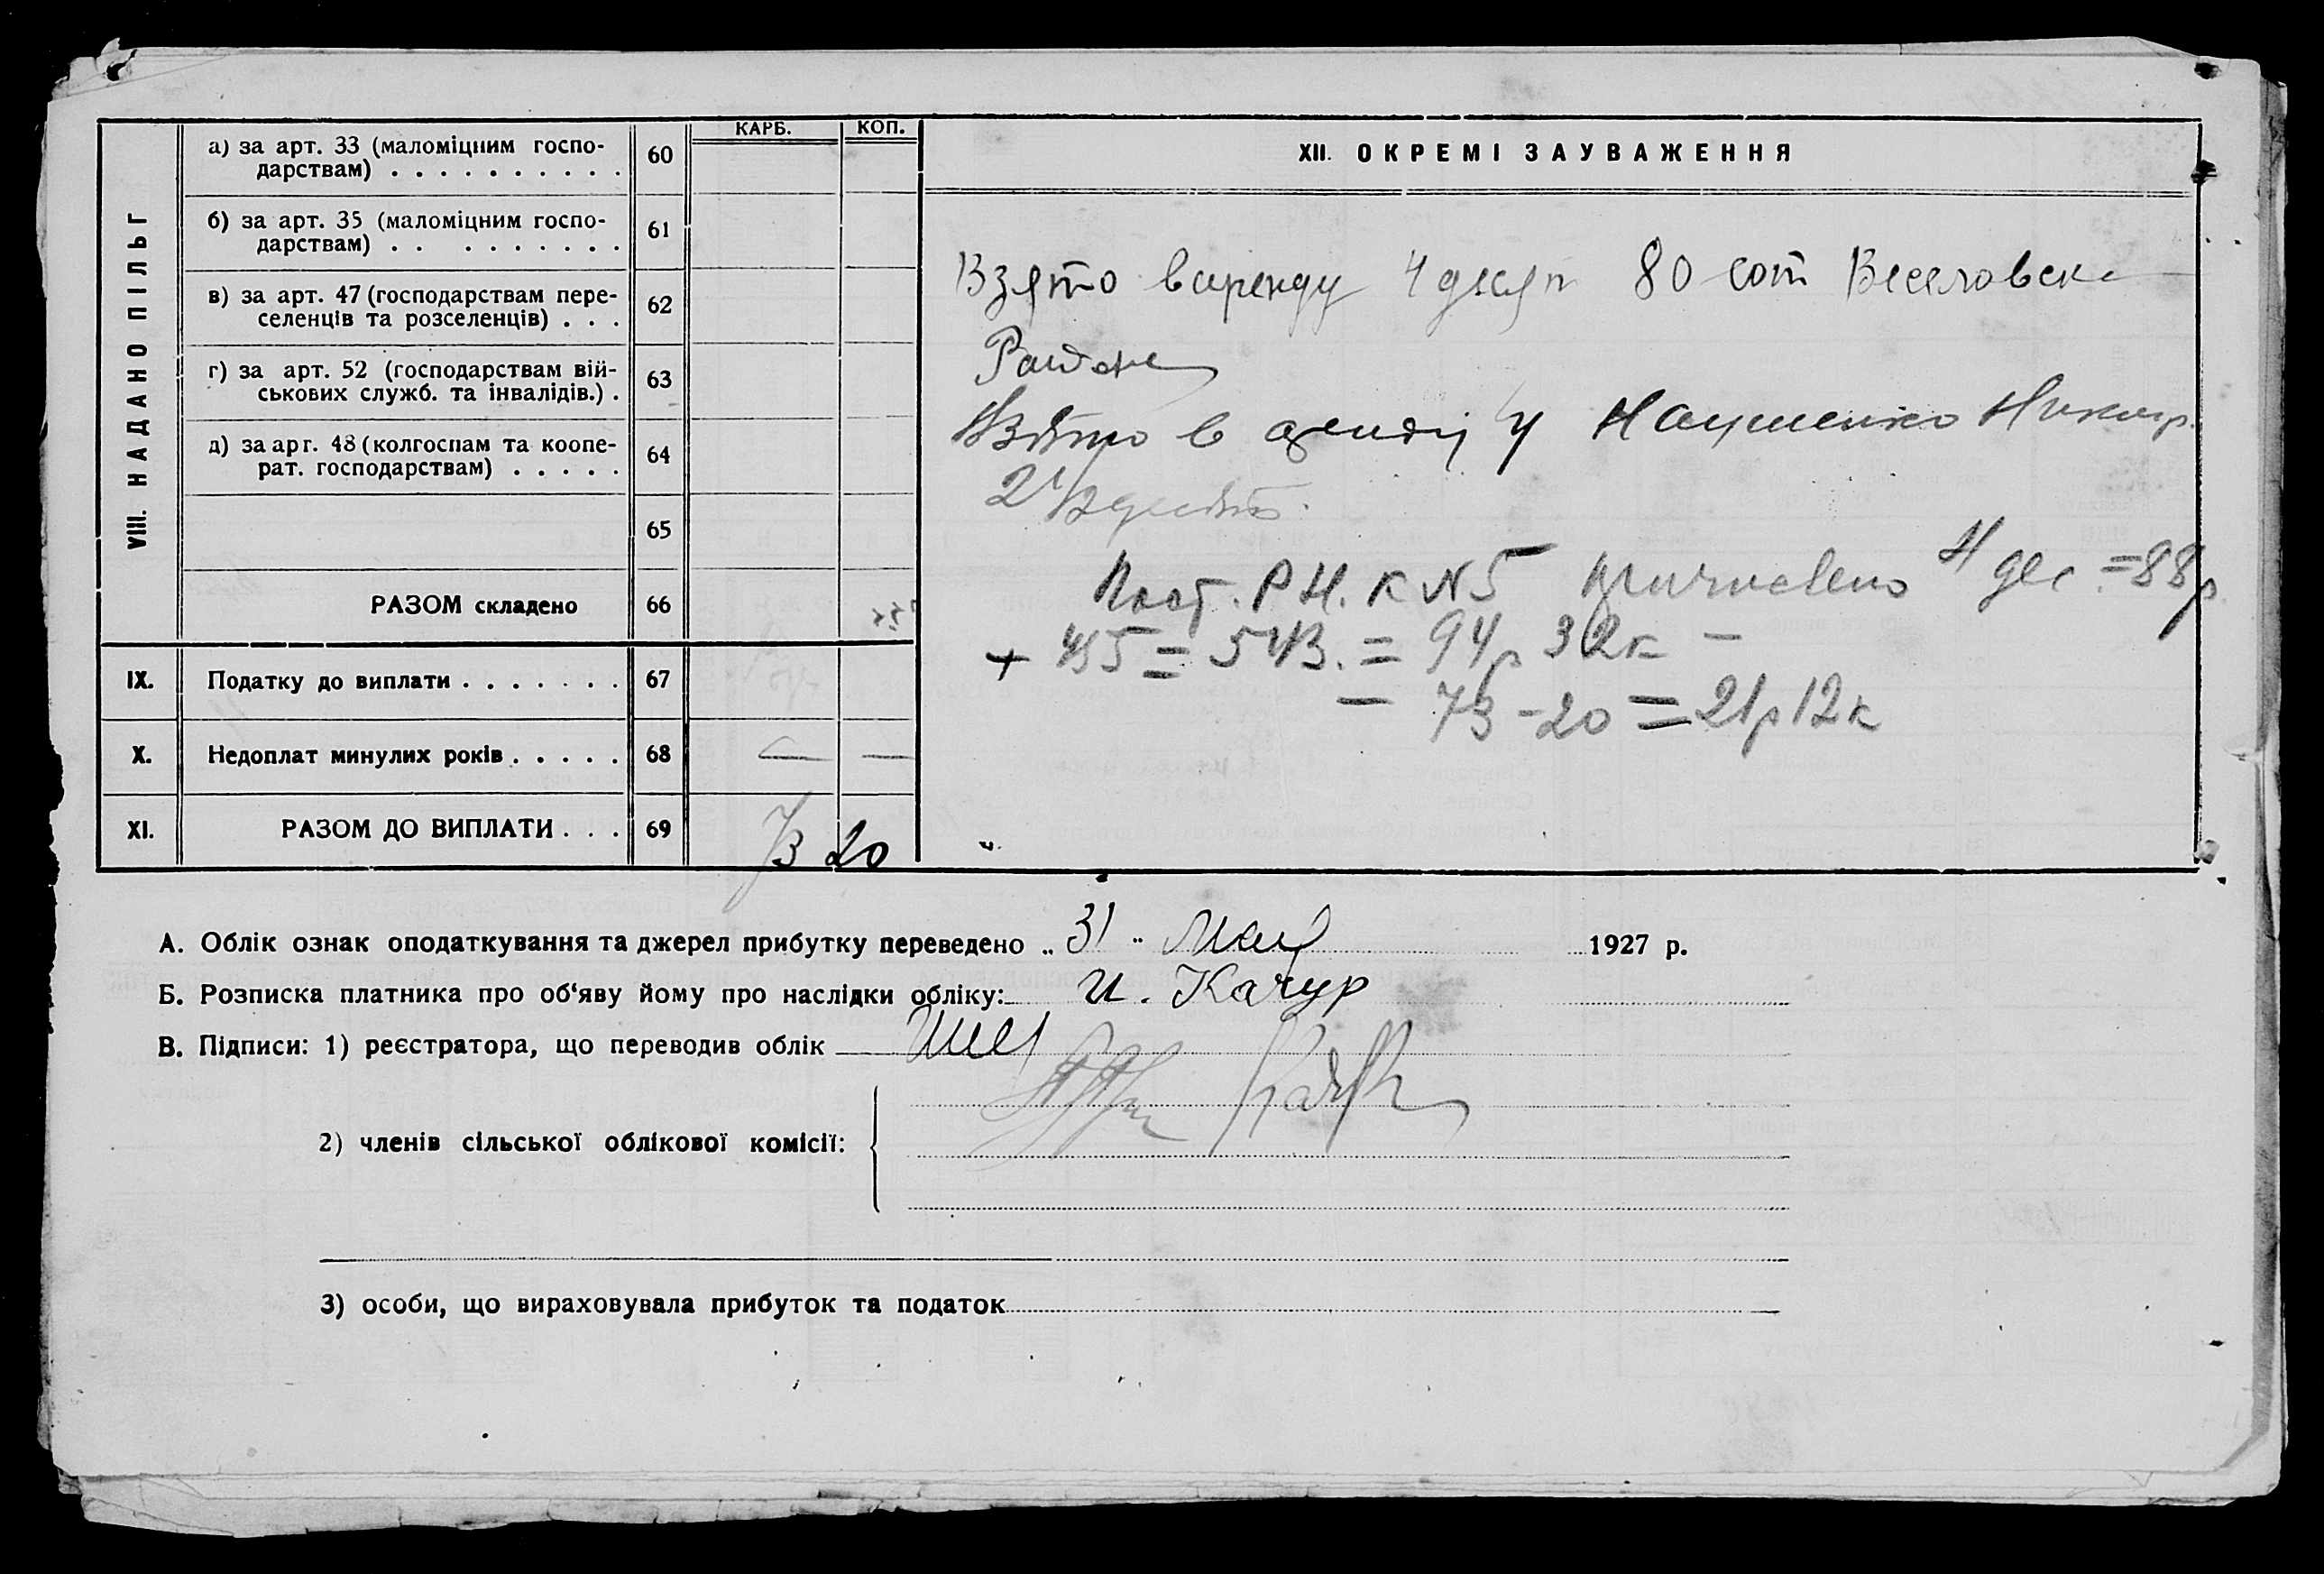 КАРБ. КОП.
VIII. НАДАНО ПІЛЬГ
а) за арт. 33 (маломіцним госпо-
дарствам) . . . . . . . . . . 60
б) за арт. 35 (маломіцним госпо-
дарствам) . . . . . . . . . 61
в) за арт. 47 (господарствам пере-
селенців та розселенців) . . . 62
г) за арт. 52 (господарствам вій-
ськових служб. та інвалідів.) . 63
д) за арг. 48 (колгоспам та коопе-
рат. господарствам) . . . . . 64
65
РАЗОМ складено 66
IX. Податку до виплати . . . . . . . 67
X. Недоплат минулих років . . . . . 68 — —
XI. РАЗОМ ДО ВИПЛАТИ . . . 69 73 20
XII. ОКРЕМІ ЗАУВАЖЕННЯ
Взято в аренду 4 десят 80 сот Веселовск
Районе
Взято в у Наушенко
2 1/2 десят.
Пост. Р.Н.К N5 причислено 4 дес. = 88р
+ 455 = 543. = 94р 32к —
— 73 - 20 = 21р 12к
А. Облік ознак оподаткування та джерел прибутку переведено „ 31 " Мая 1927 р.
Б. Розписка платника про об'яву йому про наслідки обліку: И. Качур
В. Підписи: 1) реєстратора, що переводив облік
2) членів сільської облікової комісії:
3) особи, що вираховувала прибуток та податок